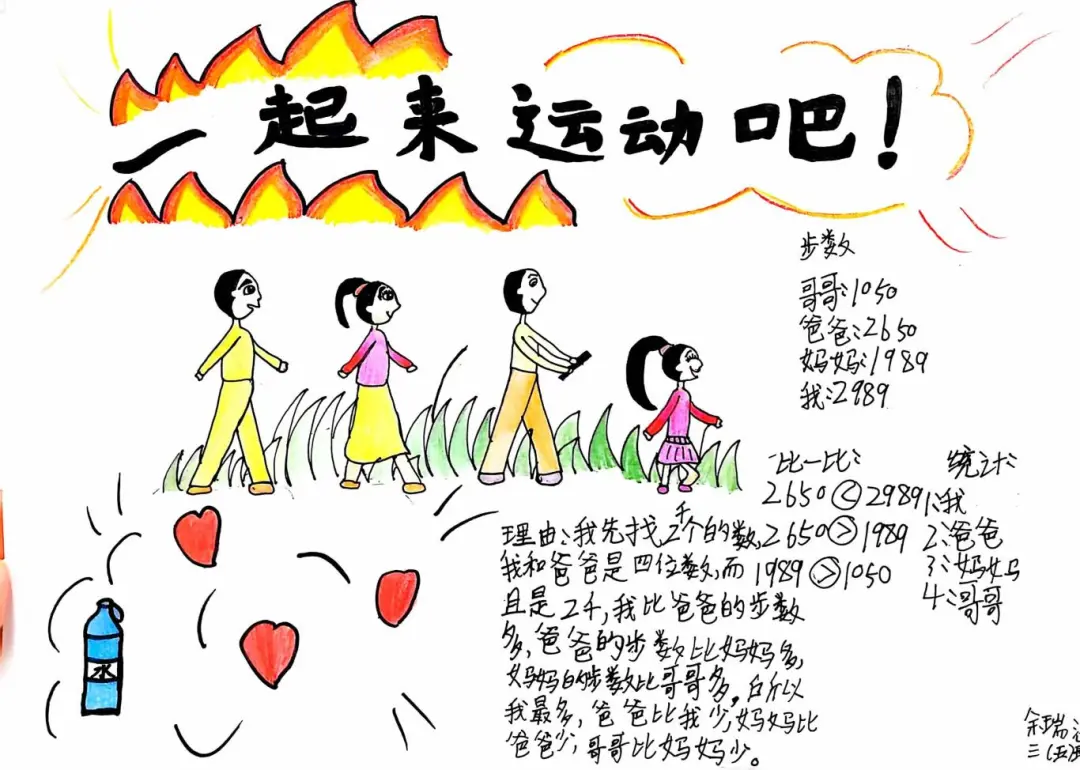 一起来运动吧！
步数
哥哥：1050
爸爸：2650
妈妈：1989
我：2989
比一比：
2650＜2989
2650＞1989
1989＞1050
统计：
1：我
2：爸爸
3：妈妈
4：哥哥
理由：我先找2千个的数，
我和爸爸是四位数，而
且是2千，我比爸爸的步数
多，爸爸的步数比妈妈多，
妈妈的步数比哥哥多，所以
我最多，爸爸比我少，妈妈比
爸爸少，哥哥比妈妈少。
水
余瑞